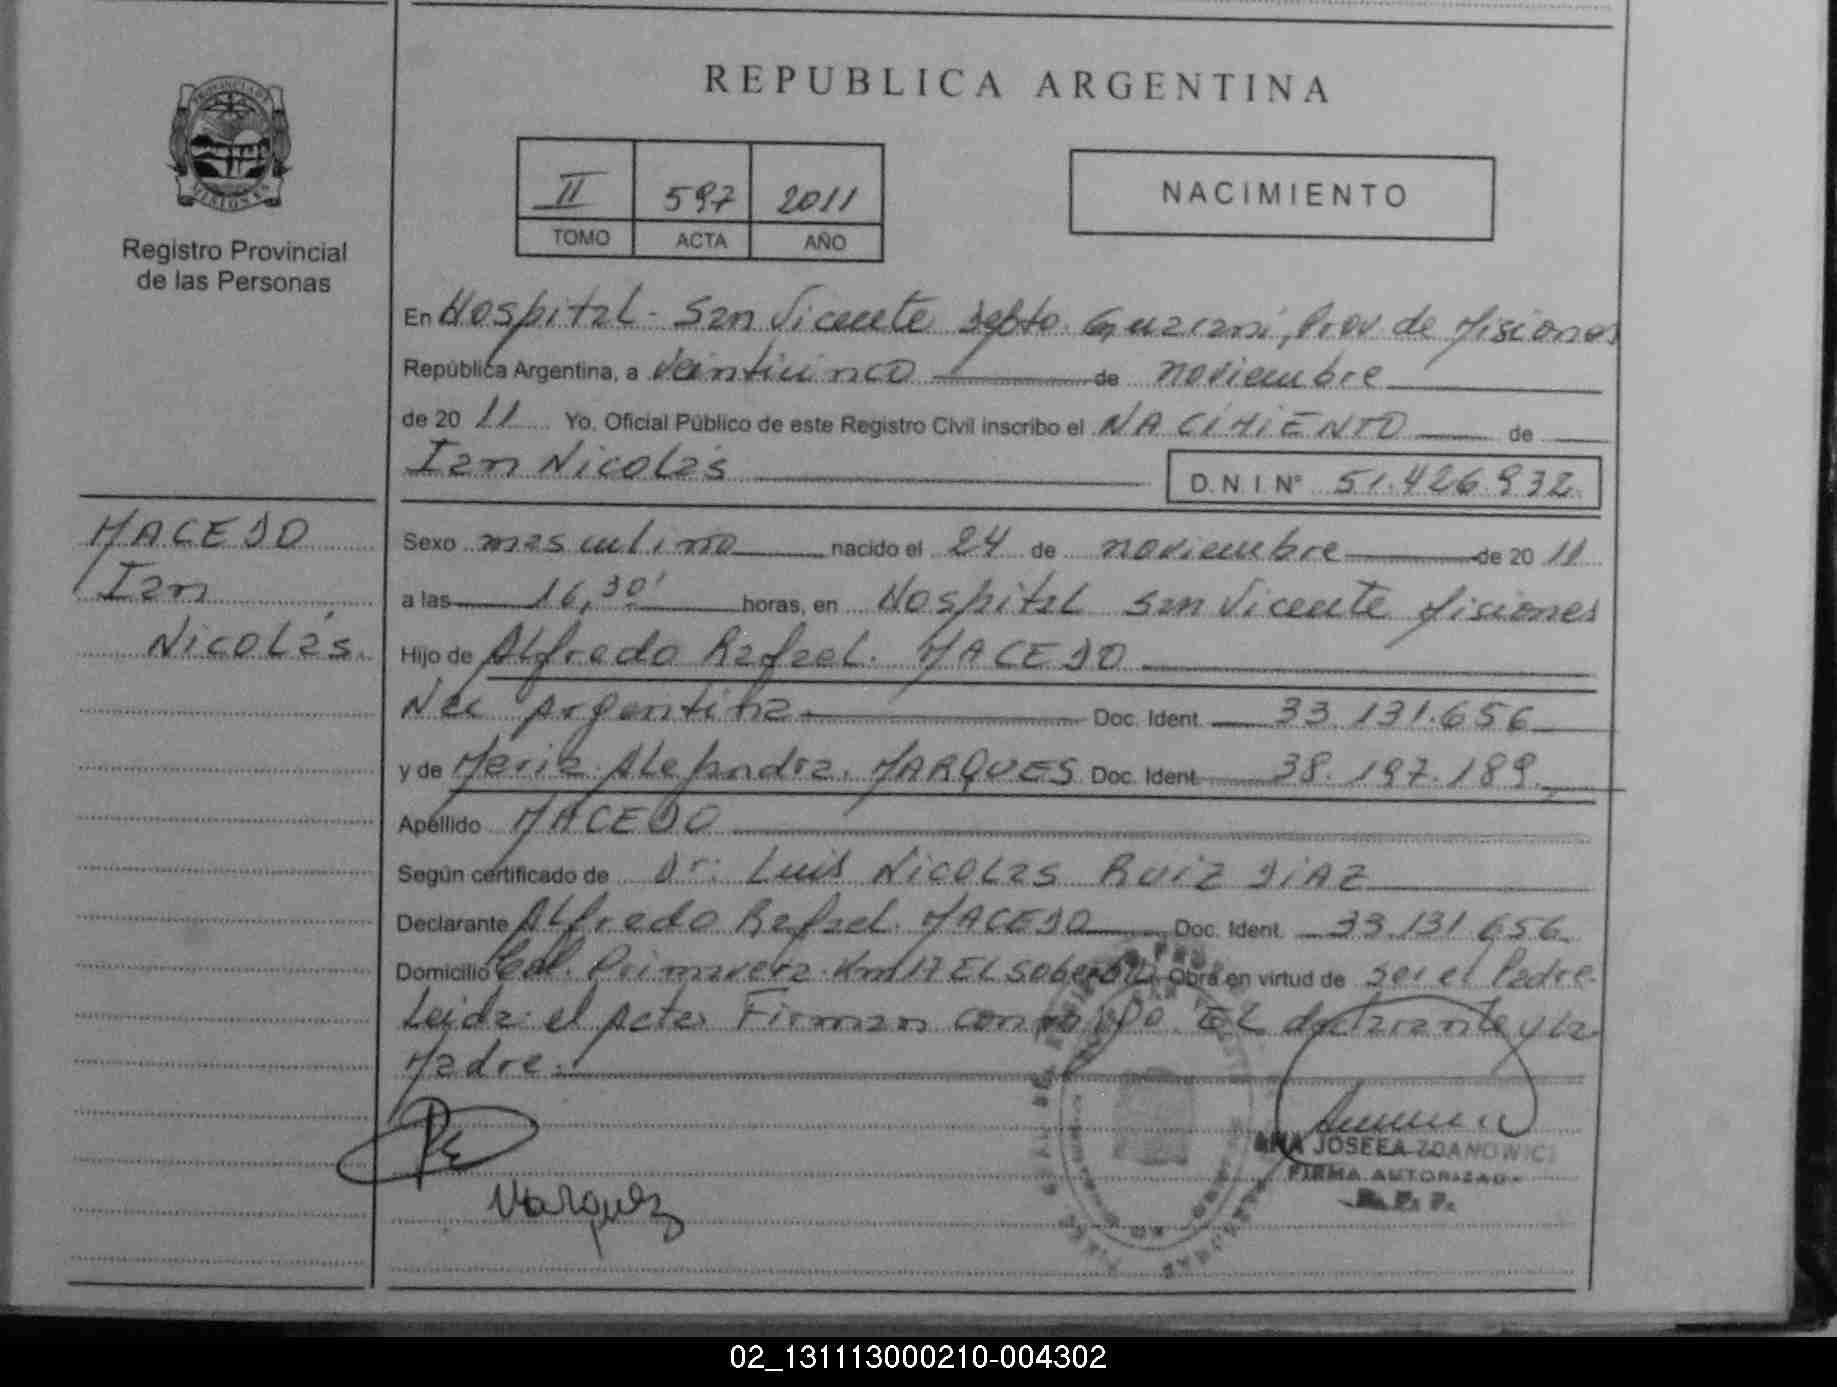 REPUBLICA ARGENTINA
PROVINCIA DE
MISIONES
Registro Provincial
de las Personas
II 597 2011
TOMO ACTA AÑO
NACIMIENTO
En Hospital - San Vicente Dpto. Guarani, Prov de Misiones
República Argentina, a veinticinco de noviembre
de 20 11 Yo. Oficial Público de este Registro Civil inscribo el NACIMIENTO de
Ian Nicolás
D.N.I.N° 51.426.932
MACEDO
Ian
Nicolás.
Sexo masculino nacido el 24 de noviembre de 20 11
a las 16,30' horas, en Hospital San Vicente Misiones
Hijo de Alfredo Rafael. MACEDO
Nac Argentina Doc. Ident. 33.131.656
y de Maria Alejandra. MARQUES Doc. Ident. 38.197.189
Apellido MACEDO
Según certificado de Dr. Luis Nicolas RUIZ DIAZ
Declarante Alfredo Rafael. MACEDO Doc. Ident. 33.131.656
Domicilio Col. Primavera Km 17 El Soberbio Obra en virtud de ser el Padre
Leida el acta Firman conmigo El declarante y la
Madre.
Marquez
ANA JOSEFA ZDANOWICZ
FIRMA AUTORIZADA
R. P. P.
02_131113000210-004302